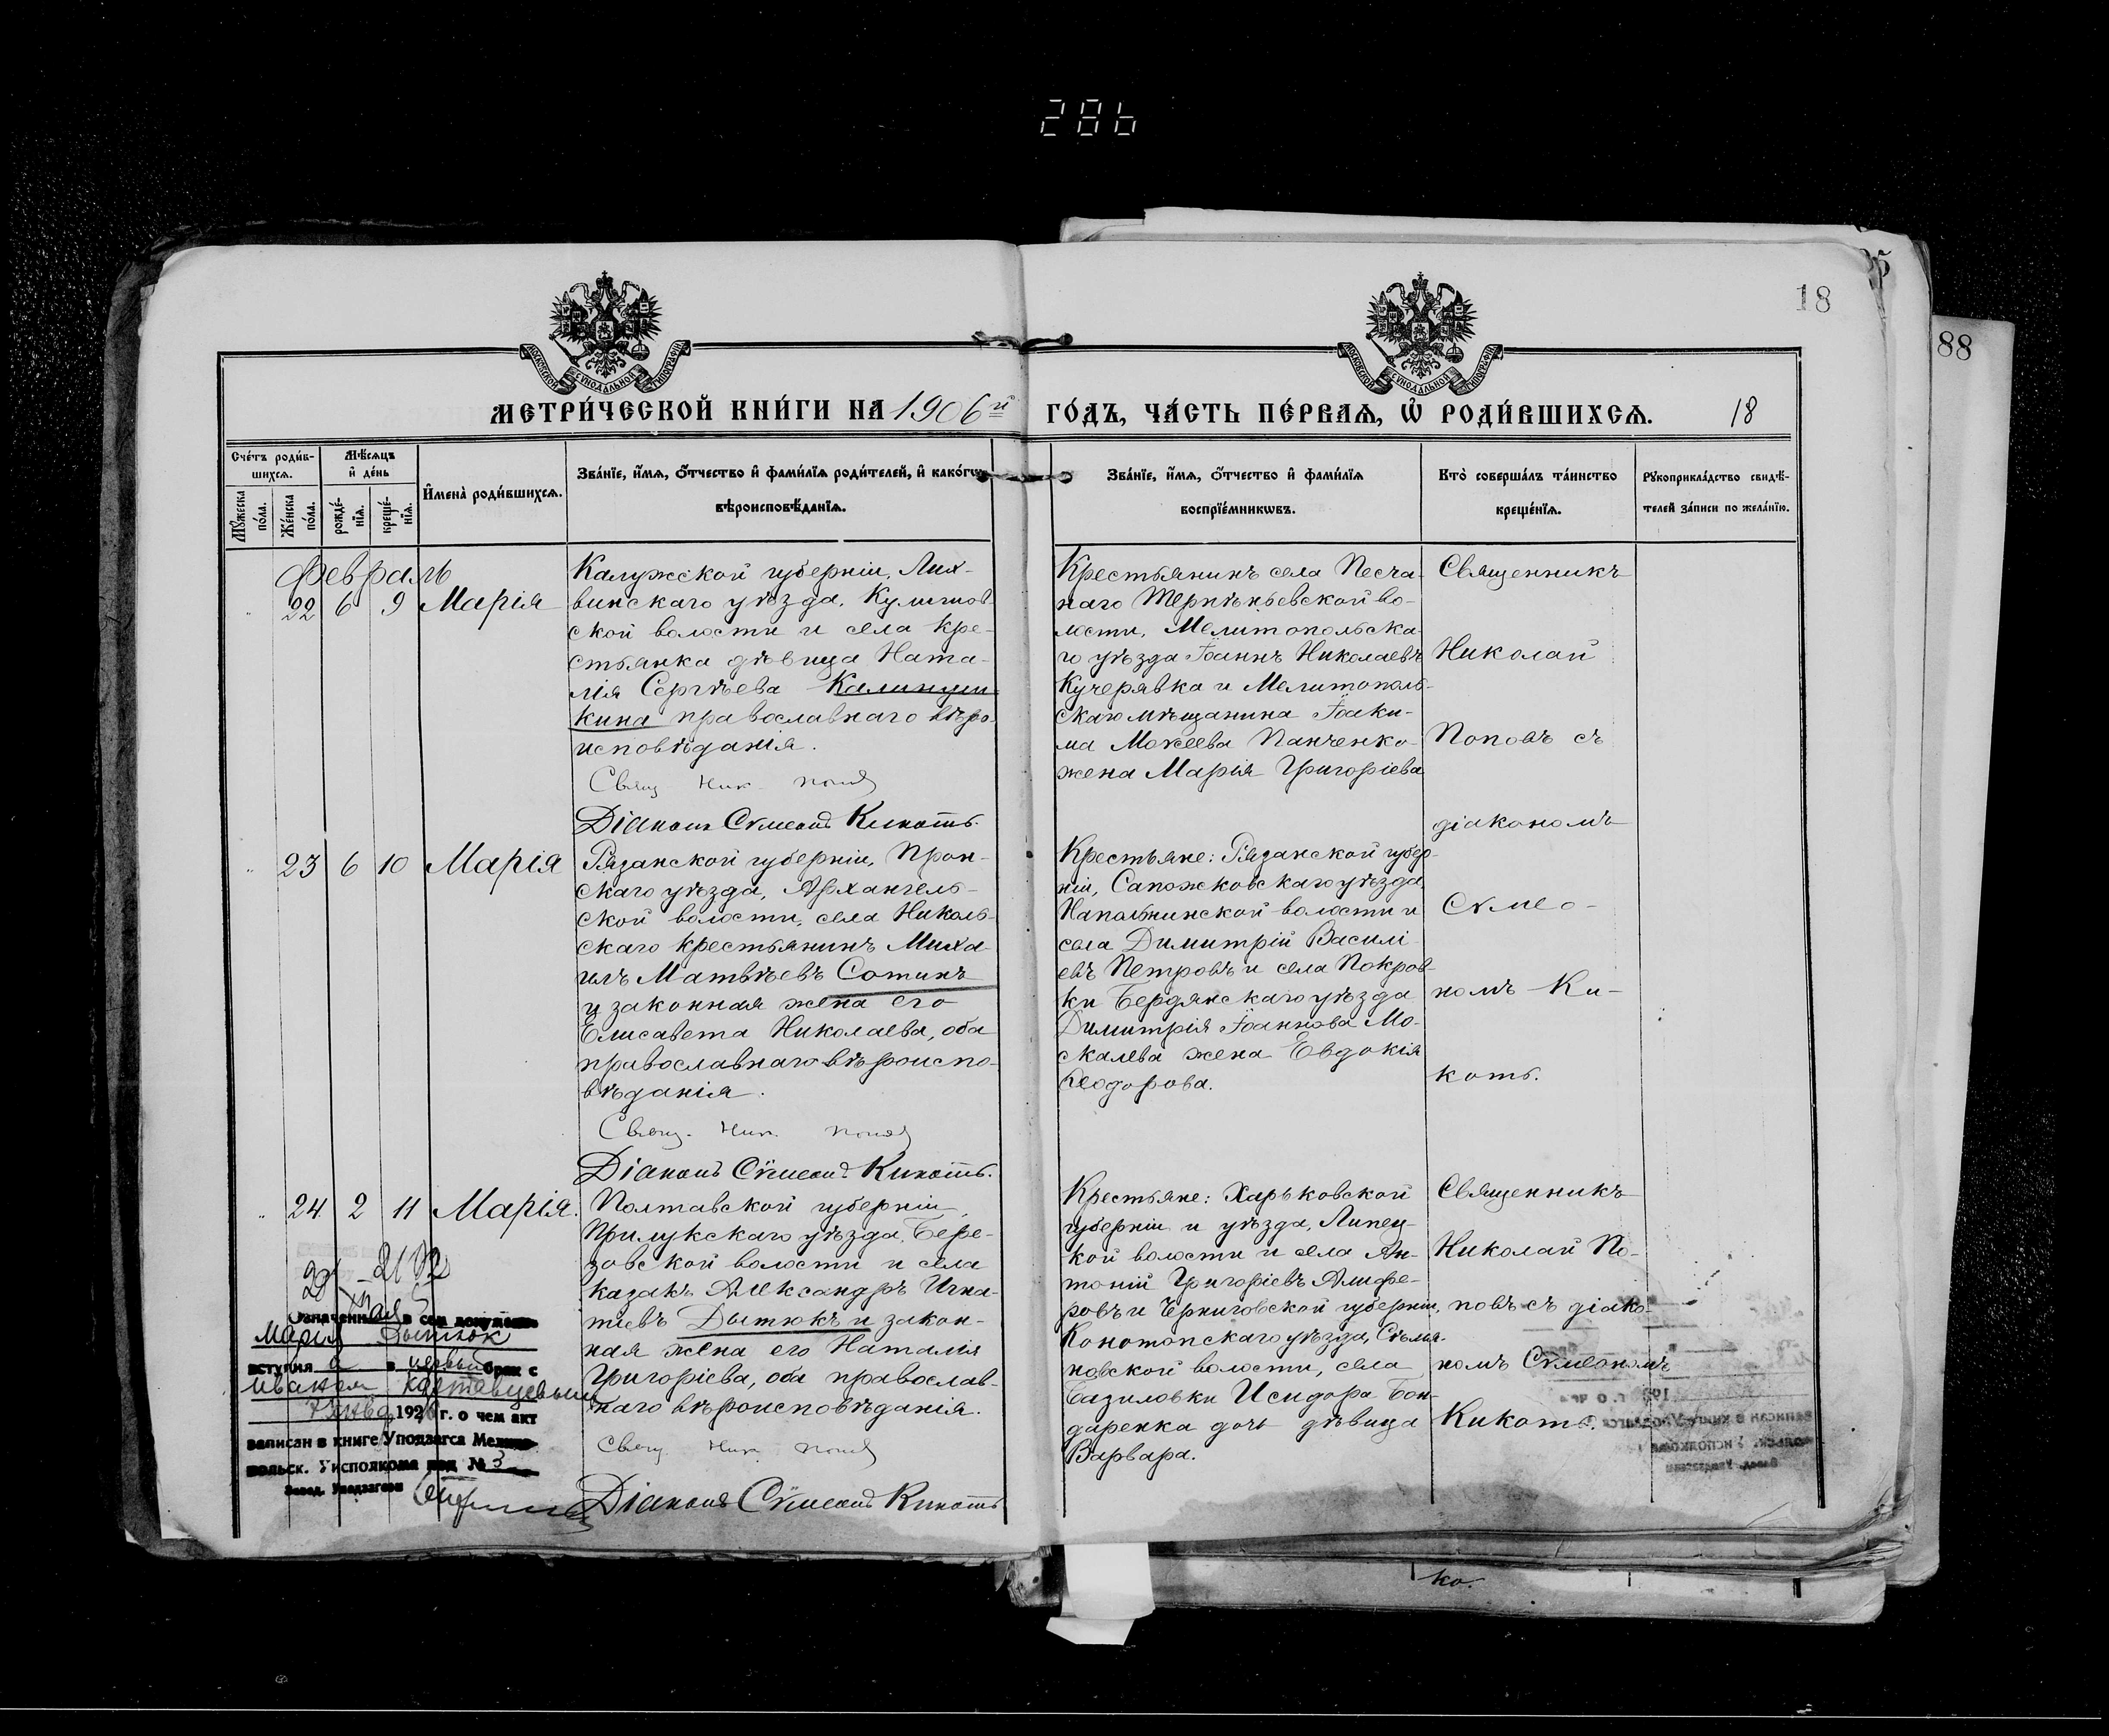 286
18
88
МОСКОВСКОЙ СУНОДАЛЬНОЙ ТИПОГРАФІИ
МОСКОВСКОЙ СУНОДАЛЬНОЙ ТИПОГРАФІИ
МЕТРИ́ЧЕСКОЙ КНИ́ГИ НА 1906й
ГО́ДЪ, ЧА́СТЬ ПЕ́РВАЯ, Ѿ РОДИ́ВШИХСЯ. 18
Сче́тъ роди́вшихся.
Му́жеска по́ла.
Же́нска по́ла.
Мѣ́сяцъ и де́нь
рожде́нія.
креще́нія.
Имена̀ роди́вшихся.
Зва́ніе, и́мя, о́тчество и фами́лія роди́телей, и како́гѡ
вѣроисповѣ́данія.
Зва́ніе, и́мя, о́тчество и фами́лія
воспріе́мникѡвъ.
Кто̀ соверша́лъ та́инство
креще́нія.
Рукоприкла́дство свидѣ́-
телей за́писи по жела́нію.
Февраль
22 6 9 Марія
Калужской губерніи, Лих-
винскаго уѣзда,
ской волости и села кре-
стьянка дѣвица Ната-
лія Сергѣева Калинуш-
кина православнаго вѣро-
исповѣданія.
Свящ Ник Попов
Діаконъ Сѵмеонъ Кикоть.
Крестьянинъ села Песча-
наго Терпѣньевской во-
лости, Мелитопольска-
го уѣзда Іоаннъ Николаевъ
Кучерявка и Мелитополь-
скаго мѣщанина Іоаки-
ма Мокеева Панченко
жена Марія Григоріева
Священникъ
Николай
Поповъ съ
діакономъ
Сѵмео-
номъ Ки-
коть.
23 6 10 Марія
Рязанской губерніи, Прон-
скаго уѣзда, Архангель-
ской волости, села Николь-
скаго крестьянинъ Миха-
илъ Матвѣевъ Сотинъ
и законная жена его
Елисавета Николаева, оба
православнаго вѣроиспо-
вѣданія.
Свящ. Ник. Попов
Діаконъ Сѵмеонъ Кикоть.
Крестьяне: Рязанской губер-
ніи, Сапожковскаго уѣзда,
волости и
села Димитрій Василі-
евъ Петровъ и села Покров-
ки Бердянскаго уѣзда
Димитрія Іоаннова Мо-
скалева жена Евдокія
Ѳеодорова.
24 2 11 Марія.
Полтавской губерніи,
Прилукскаго уѣзда, Бере-
зовской волости и села
казакъ Александръ Игна-
тіевъ Дытюкъ и закон-
ная жена его Наталія
Григоріева, оба православ-
наго вѣроисповѣданія.
Свящ Ник Попов
Діаконъ Сѵмеонъ Кикоть
Крестьяне: Харьковской
губерніи и уѣзда, Липец-
кой волости и села Ан-
тоній Григоріевъ Алифе-
ровъ и Черниговской губерніи,
Конотопскаго уѣзда,
новской волости, села
Базиловки Исидора Бон-
даренка дочь дѣвица
Варвара.
Священникъ
Николай По-
повъ съ діако-
номъ Сѵмеономъ
Кикоть.
Означенная в сем документе
Мария Дытюк
вступила в первый брак с
Иваном
192 г. о чем акт
записан в книге Уподзагса Мелито-
польск. Уисполкома под № 3
Завед. Уподзагсом
ко.